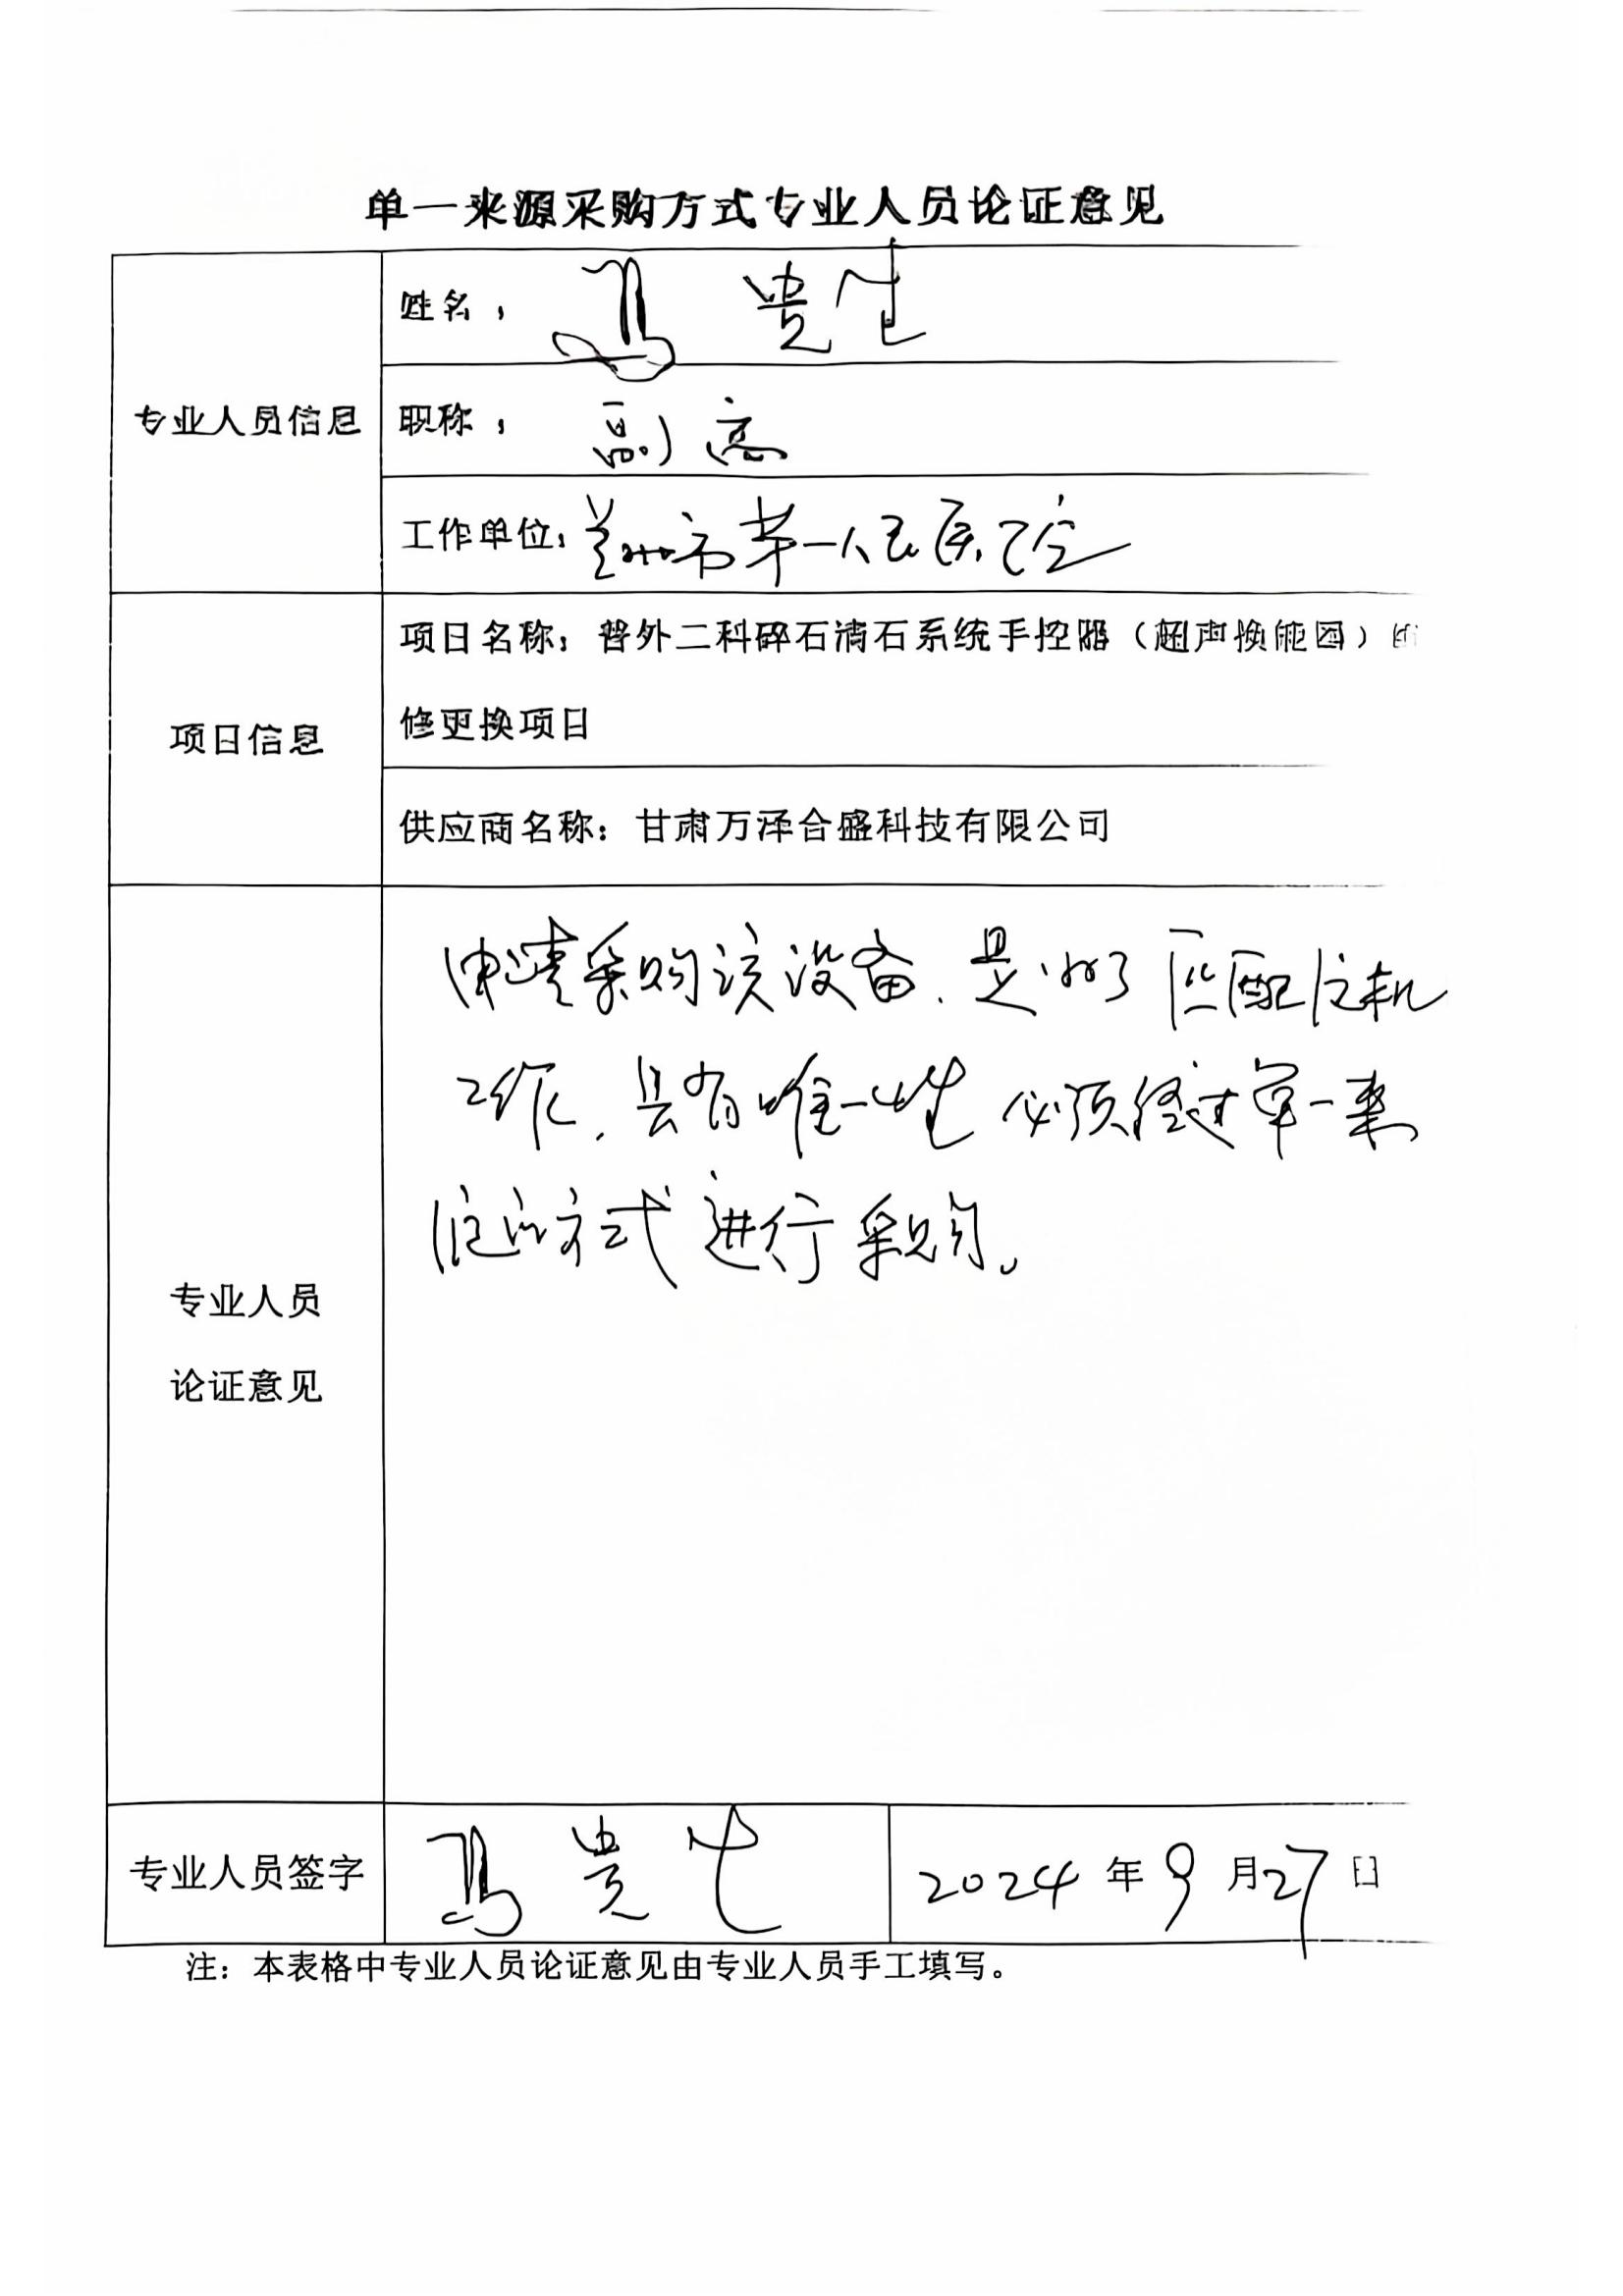 单一来源采购方式专业人员论证意见
专业人员信息
姓名：冯贵生
职称：副高
工作单位：兰州市第一人民医院
项目信息
项目名称：普外二科碎石清石系统手控器（超声换能器）
修更换项目
供应商名称：甘肃万泽合盛科技有限公司
专业人员
论证意见
申请采购该设备、是为了匹配主机
工作、具有唯一性 必须经过单一来
源的方式进行采购。
专业人员签字
冯贵生
2024年9月27日
注：本表格中专业人员论证意见由专业人员手工填写。